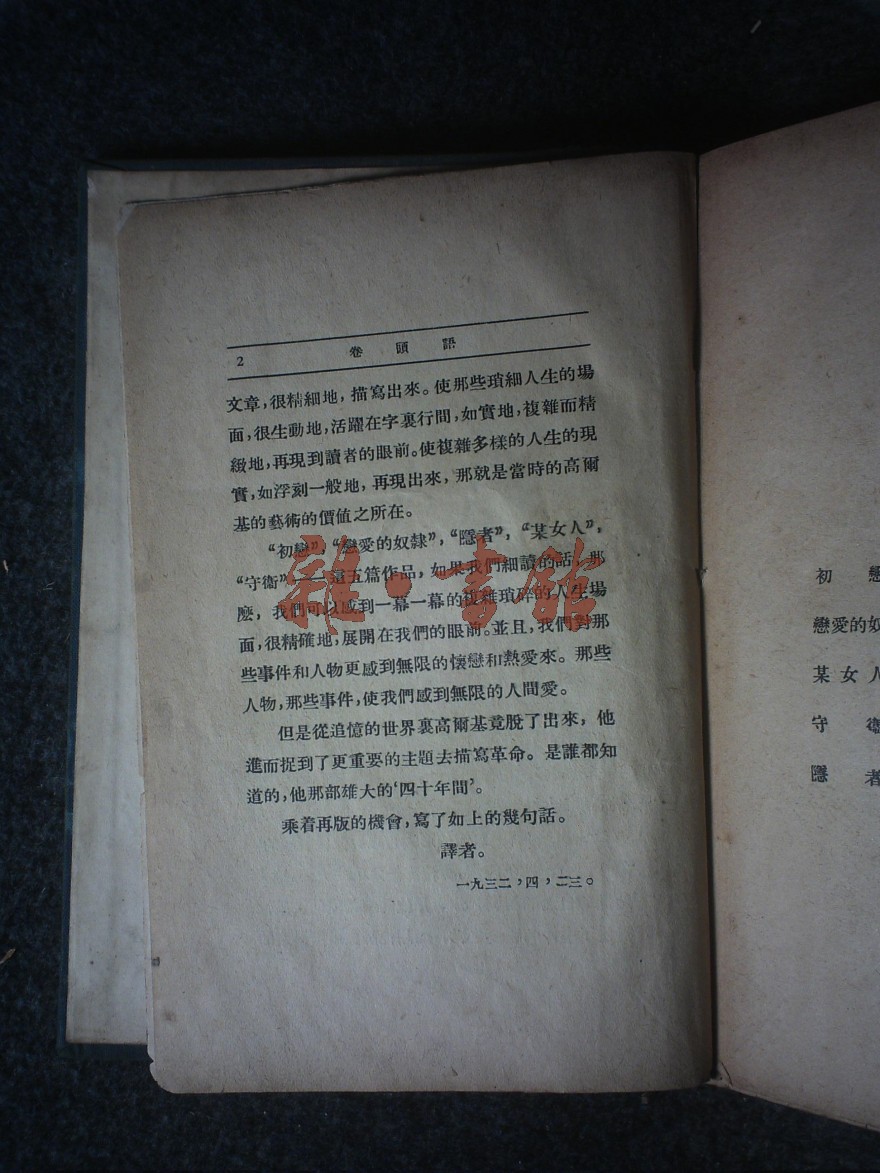 2 卷頭語
文章，很精細地，描寫出來。使那些瑣細人生的場
面，很生動地，活躍在字裏行間，如實地，複雜而精
緻地，再現到讀者的眼前。使複雜多樣的人生的現
實，如浮刻一般地，再現出來，那就是當時的高爾
基的藝術的價值之所在。
“初戀”，“戀愛的奴隸”，“隱者”，“某女人”，
“守衞”——這五篇作品，如果我們細讀的話，那
麽，我們可以感到一幕一幕的複雜瑣碎的人生場
面，很精確地，展開在我們的眼前。並且，我們對那
些事件和人物更感到無限的懷戀和熱愛來。那些
人物，那些事件，使我們感到無限的人間愛。
但是從追憶的世界裏高爾基竟脫了出來，他
進而捉到了更重要的主題去描寫革命。是誰都知
道的，他那部雄大的‘四十年間’。
乘着再版的機會，寫了如上的幾句話。
譯者。
一九三二，四，二三。
雜·書館
初戀
戀愛的奴
某女人
守衞
隱者